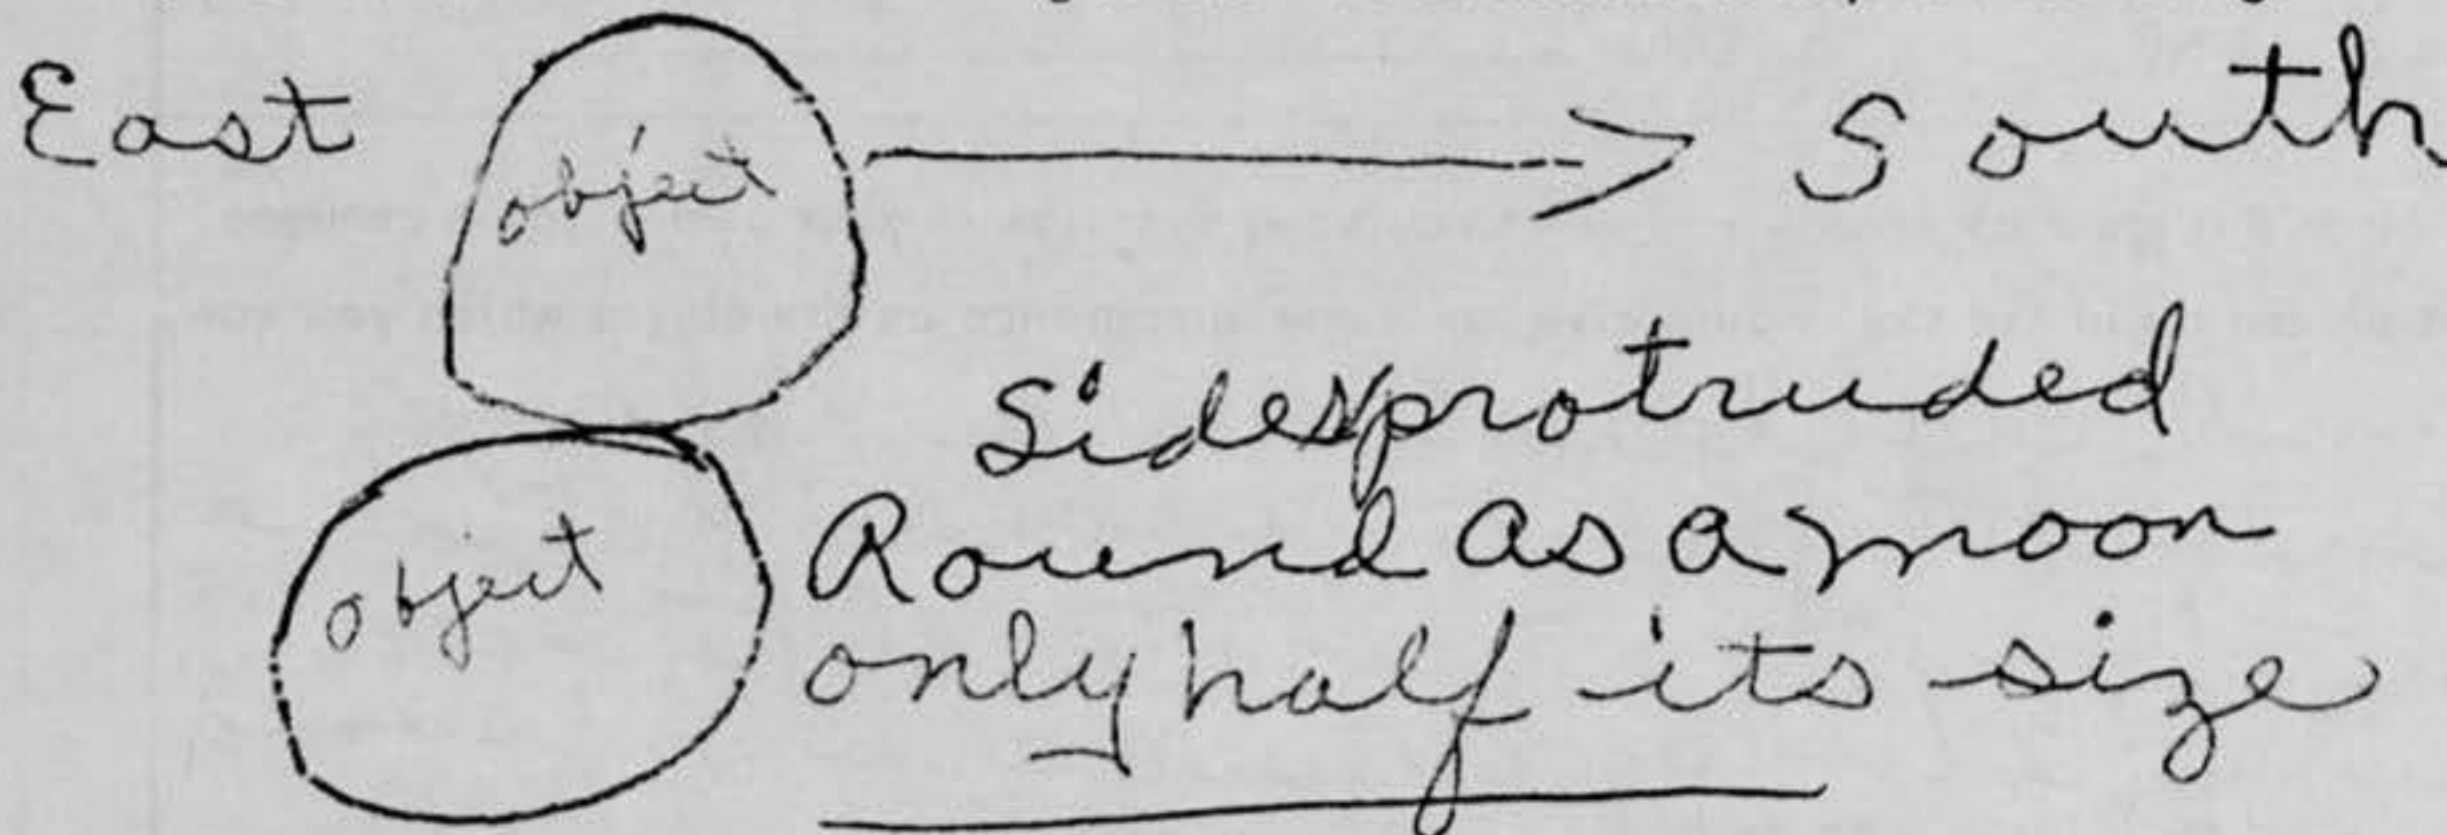 East object South
Sides protruded
object Round as a moon
only half its size